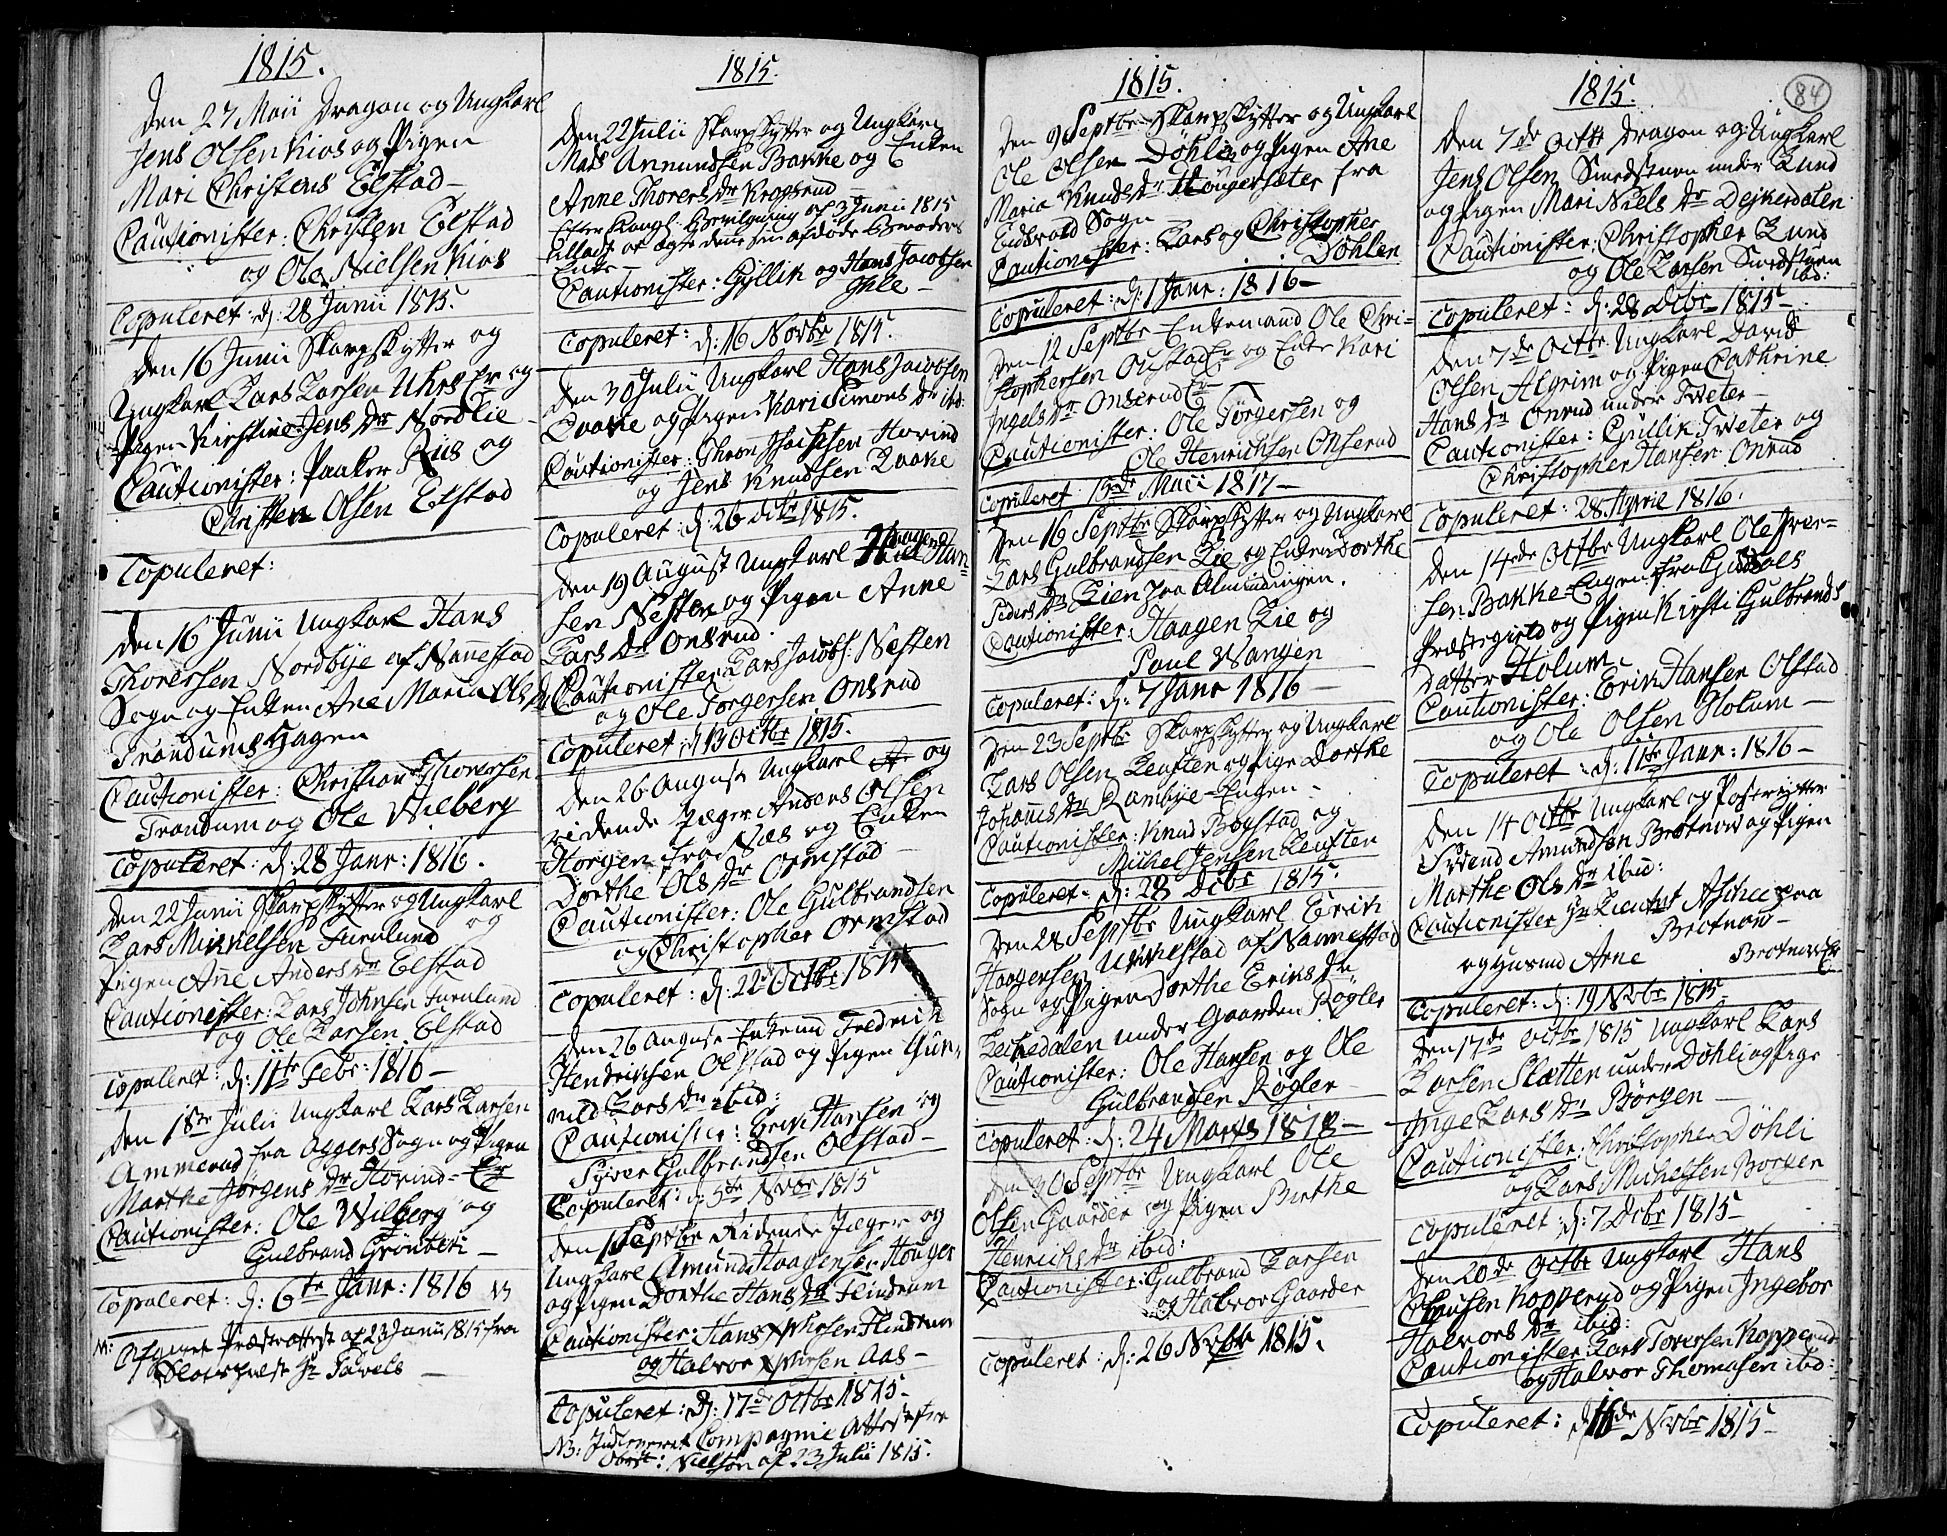 1815.
Den 27 Maii Dragon og Ungkarl
Jens Olsen Kios og Pigen
Mari Christens Elstad
Cautionister: Christen Elstad
og Ole Nielsen Kios
Copuleret: d: 28 Junii 1815.
Den 16 Junii Skarpskytter og
Ungkarl Lars Larsen og
Pigen Kirstine Jens Dr Nordlie
Cautionister: Riis og
Christen Olsen Elstad
Copuleret:
Den 16 Junii Ungkarl Hans
Thoresen Nordbye af Nannestad
Sogn og Enken Ane Maria Ols Dr
Trøndums Hagen
Cautionister: Christian Thoresen
Trondum og Ole Wilberg
Copuleret: d: 28 Janr: 1816.
Den 22 Junii Skarpskytter og Ungkarl
Lars Mikkelsen Furulund og
Pigen Ane Anders Dr Elstad
Cautionister: Lars Johnsen Furulund
og Ole Larsen Elstad
Copuleret: d: 11te Febr: 1816
Den 1ste Julii Ungkarl Lars Larsen
Ammerud fra Aggers Sogn og Pigen
Marthe Jørgens Dr Hovind-Eie
Cautionister: Ole Wilberg og
Gulbrand Grønberi
Copuleret: d: 6te Janr: 1816 NB
Præsteattest af 23 Junii 1815 fra
Hr
1815.
Den 22 Julii Skarpskytter og Ungkarl
Mads Anmundsen Bakke og Enken
Anne Thorers Dr Kropsrud
Efter Kongl: Bevilgning af 3 Junii 1815
tilladt at ægte denne sin afdøde Broders
Enke
Cautionister: Gyllik og Hans Jacobsen
Ihle
Copuleret: d: 16 Novbr 1815.
Den 30 Julii Ungkarl Hans Jacobsen
Laake og Pigen Kari Simons Dr ibd:
Cautionister: Thron Hovind
og Jens Knudsen Laake
Copuleret: d: 26 Octbr 1815.
Den 19 August Ungkarl Haagen Han-
sen Nesten og Pigen Anne
Lars Dr Onsrud.
Cautionister: Lars Jacobs: Nesten
og Ole Torgersen Onsrud
Copuleret: d: 13 Octbr 1815.
Den 26 August Ungkarl og
ridende Jæger Anders Olsen
Horgen fra Næs og Enken
Dorthe Ols Dr Ormstad
Cautionister: Ole Gulbrandsen
og Christopher Ormstad
Copuleret: d: 22d Octbr 1815
Den 26 August Enkemd Fredrich
Hendrichsen Olstad og Pigen Gun-
nild Lars Dr ibid:
Cautionister: Erik Hansen og
Syver Gulbrandsen Olstad
Copuleret: d: 5te Novbr 1815
Den 1 Septbr Ridende Jæger og
Ungkarl Amund Haagensen Houger
og Pigen Dorthe Hans Dr Flindrum
Cautionister: Hans Flindrum
og Halvor Aas
Copuleret: d: 17de Octbr 1815
NB: Compagnie Attest
Obrst: Nielson af 23 Julii 1815.
1815.
Den 9 Septbr Skarpskytter og Ungkarl
Ole Olsen Döhlie og Pigen Ane
Maria Knuds Dr Hougersæter fra
Eidsvold Sogn
Cautionister: Lars og Christopher
Döhlen
Copuleret: d: 1 Janr: 1816
Den 12 Septbr Enkemand Ole Chri-
stophersen Oustad Ei og Enke Kari
Ingels Dr Onsrud Ei
Cautionister: Ole Törgersen og
Ole Henrichsen Onserud
Copuleret: 13de Maii 1817
Den 16 Septbr Skarpskytter og Ungkarl
Lars Gulbrandsen Lie og Enken Dorthe
Peders Dr Lien fra Almindingen.
Cautionister: Haagen Lie og
Poul Wangen
Copuleret: d: 7 Janr 1816
Den 23 Septbr Skarpskytter og Ungkarl
Lars Olsen Leuften og Pige Dorthe
Johannes Dr Rambye-Engen
Cautionister: Knud Bogstad og
Michel Jensen Leuften
Copuleret d: 28 Dcbr 1815.
Den 28 Septbr Ungkarl Erik
Haagensen Ukkestad af Nannestad
Sogn og Pigen Dorthe Eriks Dr
under Gaarden Rögler
Cautionister: Ole Hansen og Ole
Gulbrandsen Rögler
Copuleret: d: 24 Marts 1818
Den 30 Septbr Ungkarl Ole
Olsen Gaarder og Pigen Birthe
Henrichs Dr ibid:
Cautionister: Gulbrand Larsen
og Halvor Gaarder
Copuleret: d: 26 Novbr 1815.
1815.
84
Den 7de Octbr Dragon og Ungkarl
Jens Olsen Smedstuen under Lund
og Pigen Mari Niels Dr Dejkerdalen
Cautionister: Christopher Lund
og Ole Larsen Smedstuen
ibd:
Copuleret: d: 28 Dcbr 1815
Den 7de Octbr Ungkarl David
Olsen Algrim og Pigen Cathrine
Hans Dr Onrud under Tveter
Cautionister: Gullik Tveter og
Christopher Hansen Onrud
Copuleret: 28 April 1816.
Den 14de Octbr Ungkarl Ole Iver-
sen Bakke-Engen fra
Præstegield og Pigen Kirsti Gulbrands
datter Holum
Cautionister: Erik Hansen Olstad
og Ole Olsen Holum
Copuleret d: 11te Janr: 1816
Den 14 Octbr Ungkarl og
Svend Amundsen Brotnov og Pigen
Marthe Ols Dr ibid:
Cautionister Hr Lieutnt paa
Brotnow
og Husmd Arne Brotnov Ei
Copuleret: d: 19 Novbr 1815.
Den 17de Octbr 1815 Ungkarl Lars
Larsen Slætten under Döhli og Pige
Inge Lars Dr Börgen
Cautionister: Christopher Döhli
og Lars Michelsen Borgen
Copuleret: d: 7 Dcbr 1815
Den 20de Octbr Ungkarl Hans
Clausen Kopperud og Pigen Ingebor
Halvors Dr ibid:
Cautionister: Lars Toresen Kopperud
og Halvor Thomasen ibid:
Copuleret: d 16de Novbr 1815